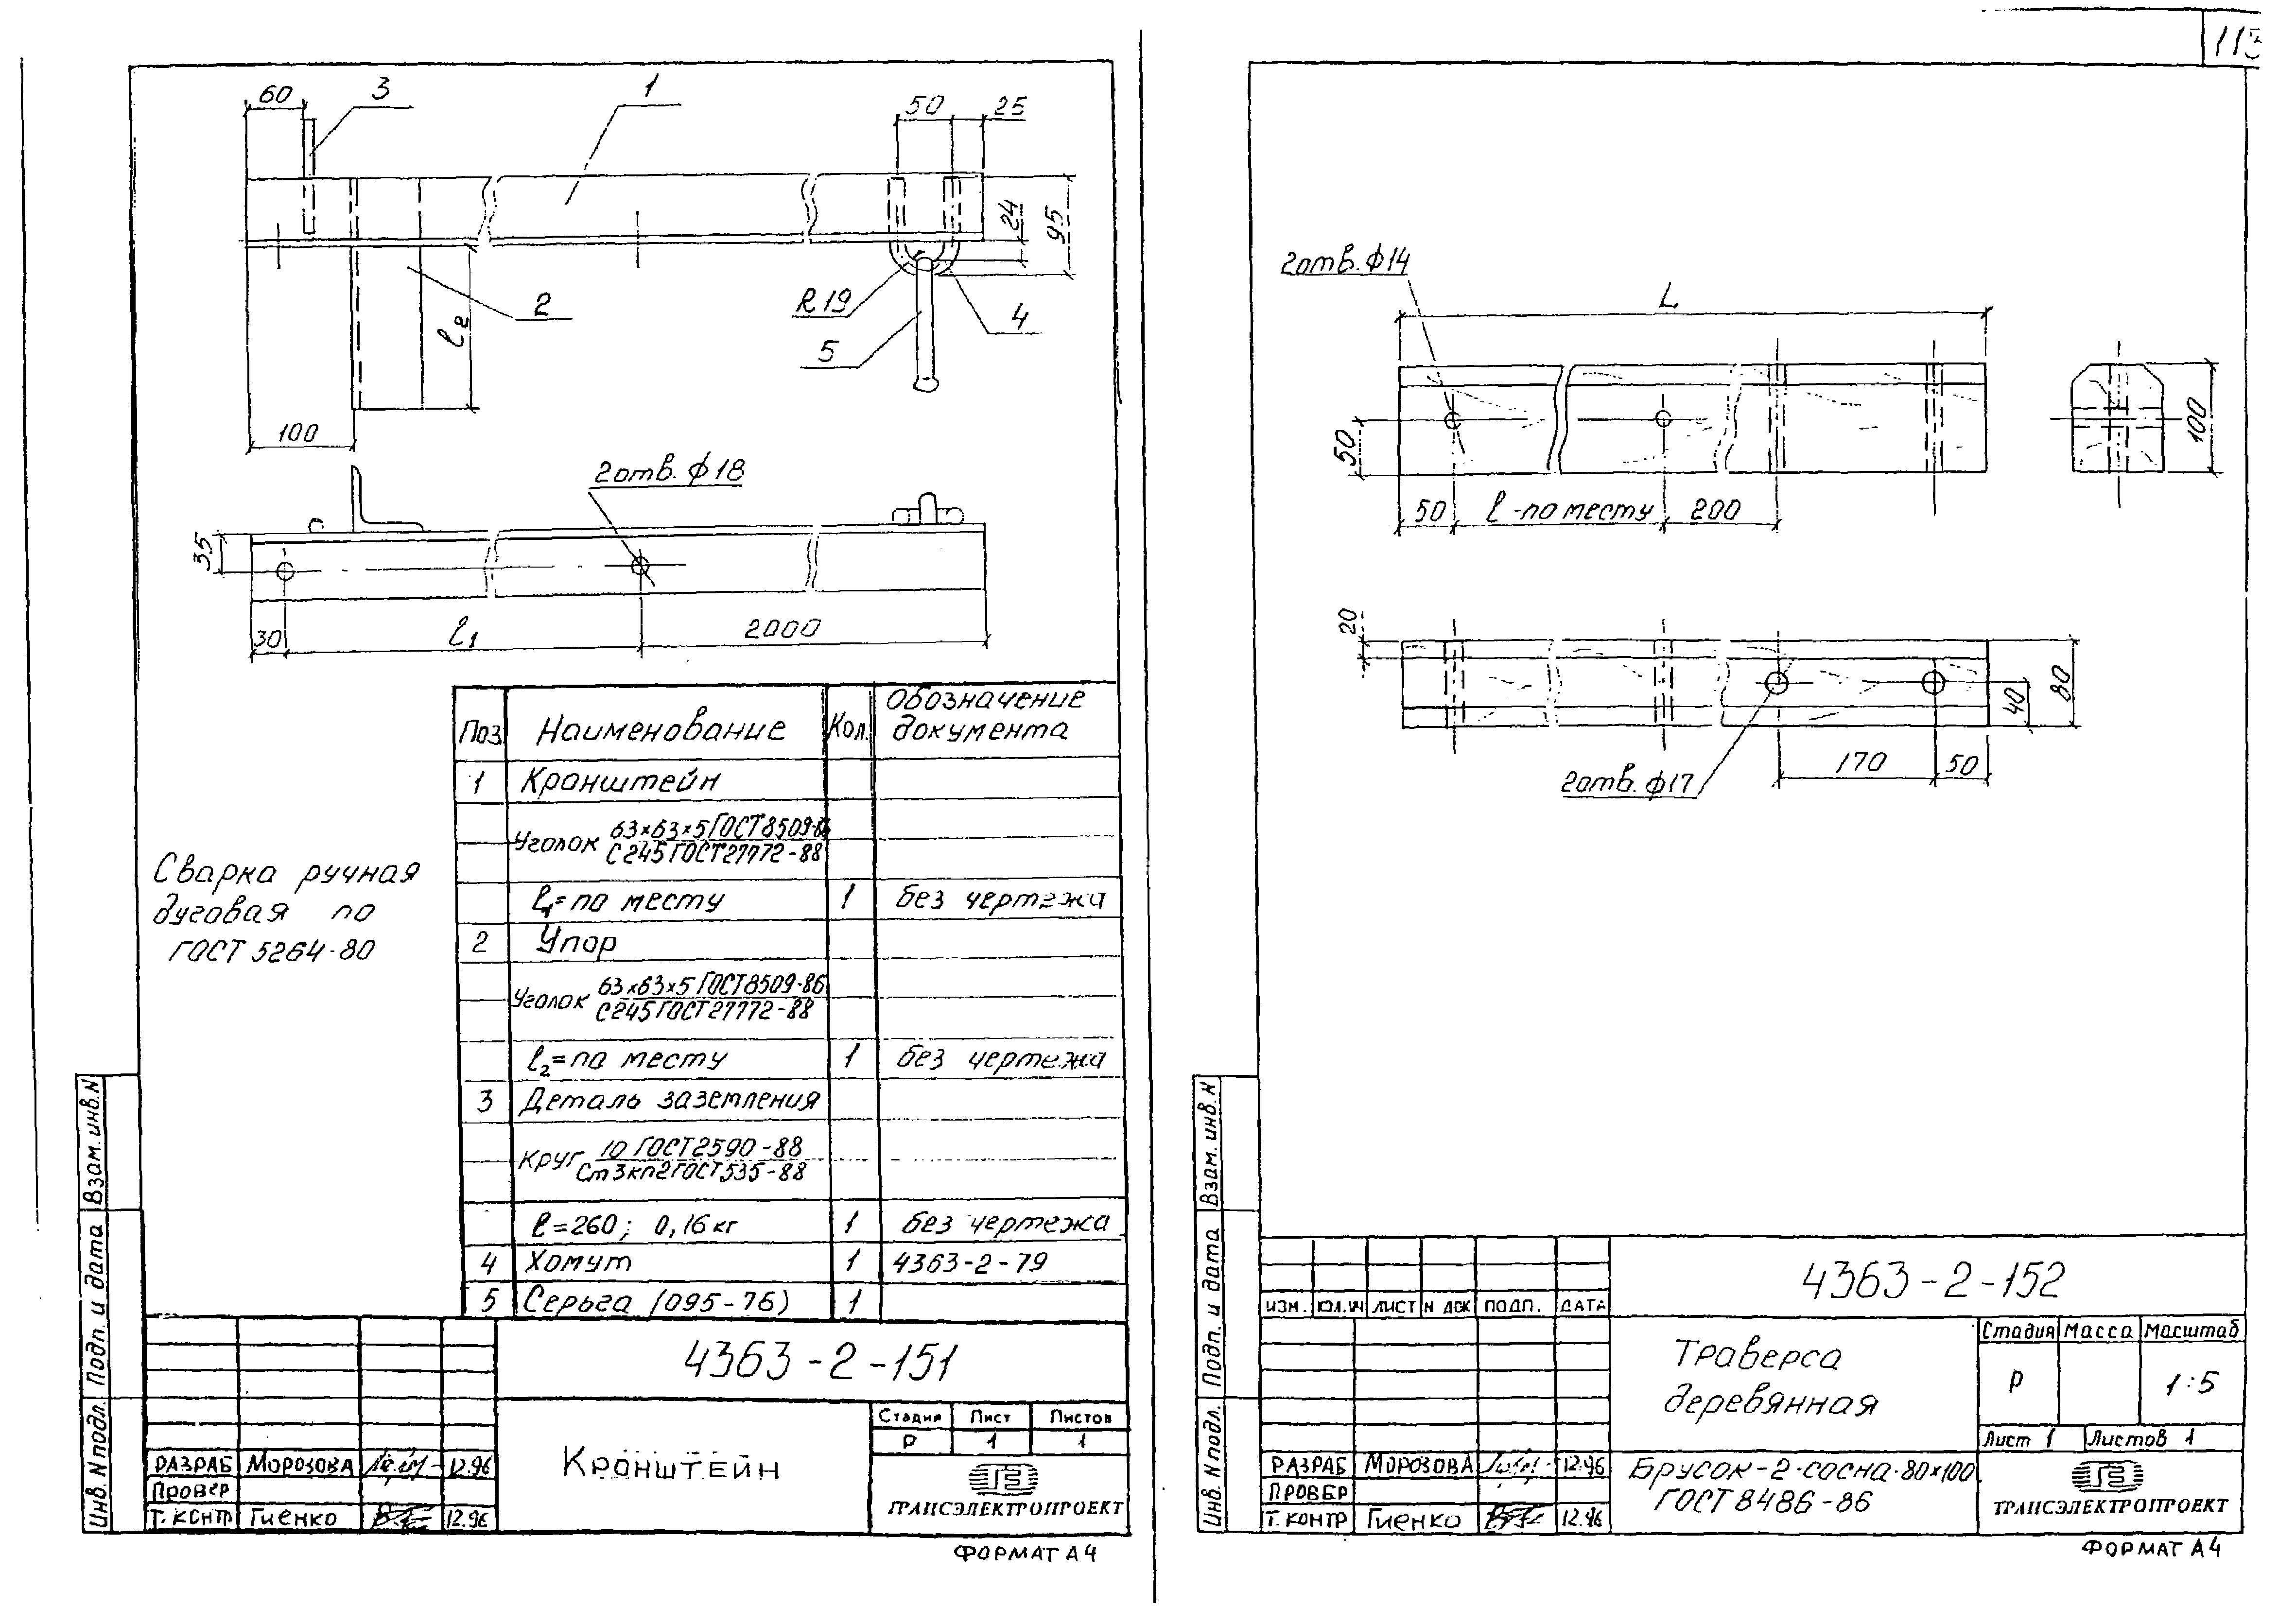 60
3
1
50
25
24
95
2
R19
4
5
l2
100
2отв.ф18
35
30
l1
2000
Поз.
Наименование
Кол.
Обозначение
документа
1
Кронштейн
Уголок 63×63×5 ГОСТ 8509-86
С245 ГОСТ 27772-88
l1=по месту
1
без чертежа
2
Упор
Уголок 63×63×5 ГОСТ 8509-86
С245 ГОСТ 27772-88
l2=по месту
1
без чертежа
3
Деталь заземления
Круг 10 ГОСТ 2590-88
Ст3кп2 ГОСТ 535-88
l=260; 0,16кг
1
без чертежа
4
Хомут
1
4363-2-79
5
Серьга (095-76)
1
Сварка ручная
дуговая по
ГОСТ 5264-80
Взам. инв. N
Подп. и дата
Инв. N подл.
4363-2-151
Кронштейн
Стадия
Лист
Листов
Р
1
1
РАЗРАБ
МОРОЗОВА
12.96
ПРОВЕР
Т.КОНТР
ГИЕНКО
12.96
ТРАНСЭЛЕКТРОПРОЕКТ
ФОРМАТ А4
2отв.ф14
L
50
100
50
l-по месту
200
20
40
80
2отв.ф17
170
50
Взам. инв. N
Подп. и дата
Инв. N подл.
4363-2-152
ИЗМ.
КОЛ.УЧ
ЛИСТ
N ДОК
ПОДП.
ДАТА
Траверса
деревянная
Стадия
Масса
Масштаб
Р
1:5
Лист 1
Листов 1
РАЗРАБ
МОРОЗОВА
12.96
ПРОВЕР
Т.КОНТР
ГИЕНКО
12.96
Брусок-2-сосна-80×100
ГОСТ 8486-86
ТРАНСЭЛЕКТРОПРОЕКТ
ФОРМАТ А4